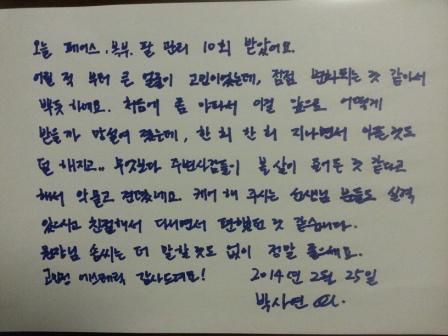 오늘 페이스, 복부, 팔 관리 10회 받았어요.
어릴 적 부터 큰 얼굴이 고민이었는데, 점점 변화되는 것 같아서
뿌듯하네요. 처음에 좀 아파서 이걸 앞으로 어떻게
받을까 망설여 졌는데, 한회 한회 지나면서 아픈것도
덜 해지고.. 무엇보다 주변사람들이 볼살이 줄어든 것 같다고
해서 악물고 견뎠네요. 케어 해 주시는 선생님 분들도 실력
있으시고 친절해서 다니면서 편했던 것 같습니다.
원장님 솜씨는 더 말할 것도 없이 정말 좋으세요.
고민정 에스테틱 감사드려요!
2014년 2월 25일
박사연